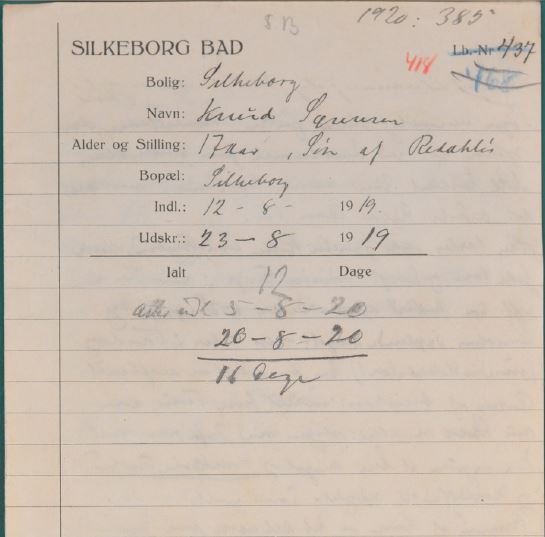 1920: 385
S. B
SILKEBORG BAD
Lb.-Nr 437
418
468
Bolig: Silkeborg
Navn: Knud Sørensen
Alder og Stilling: 17 aar, Søn af
Bopæl: Silkeborg
Indl.: 12 - 8 - 1919.
Udskr.: 23 - 8 1919
Ialt 12 Dage
atter indl 5 - 8 - 20
20 - 8 - 20
16 Dage